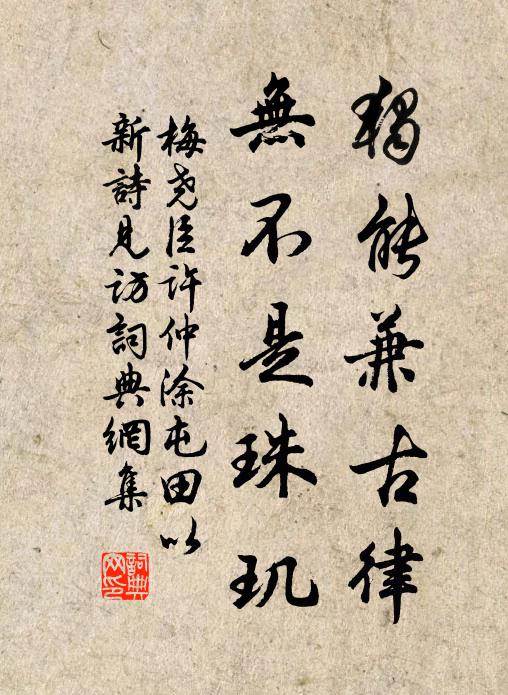 獨能兼古律
無不是珠玑
梅尧臣許仲涂屯田以
新詩見訪詞典網集
詞典
网印